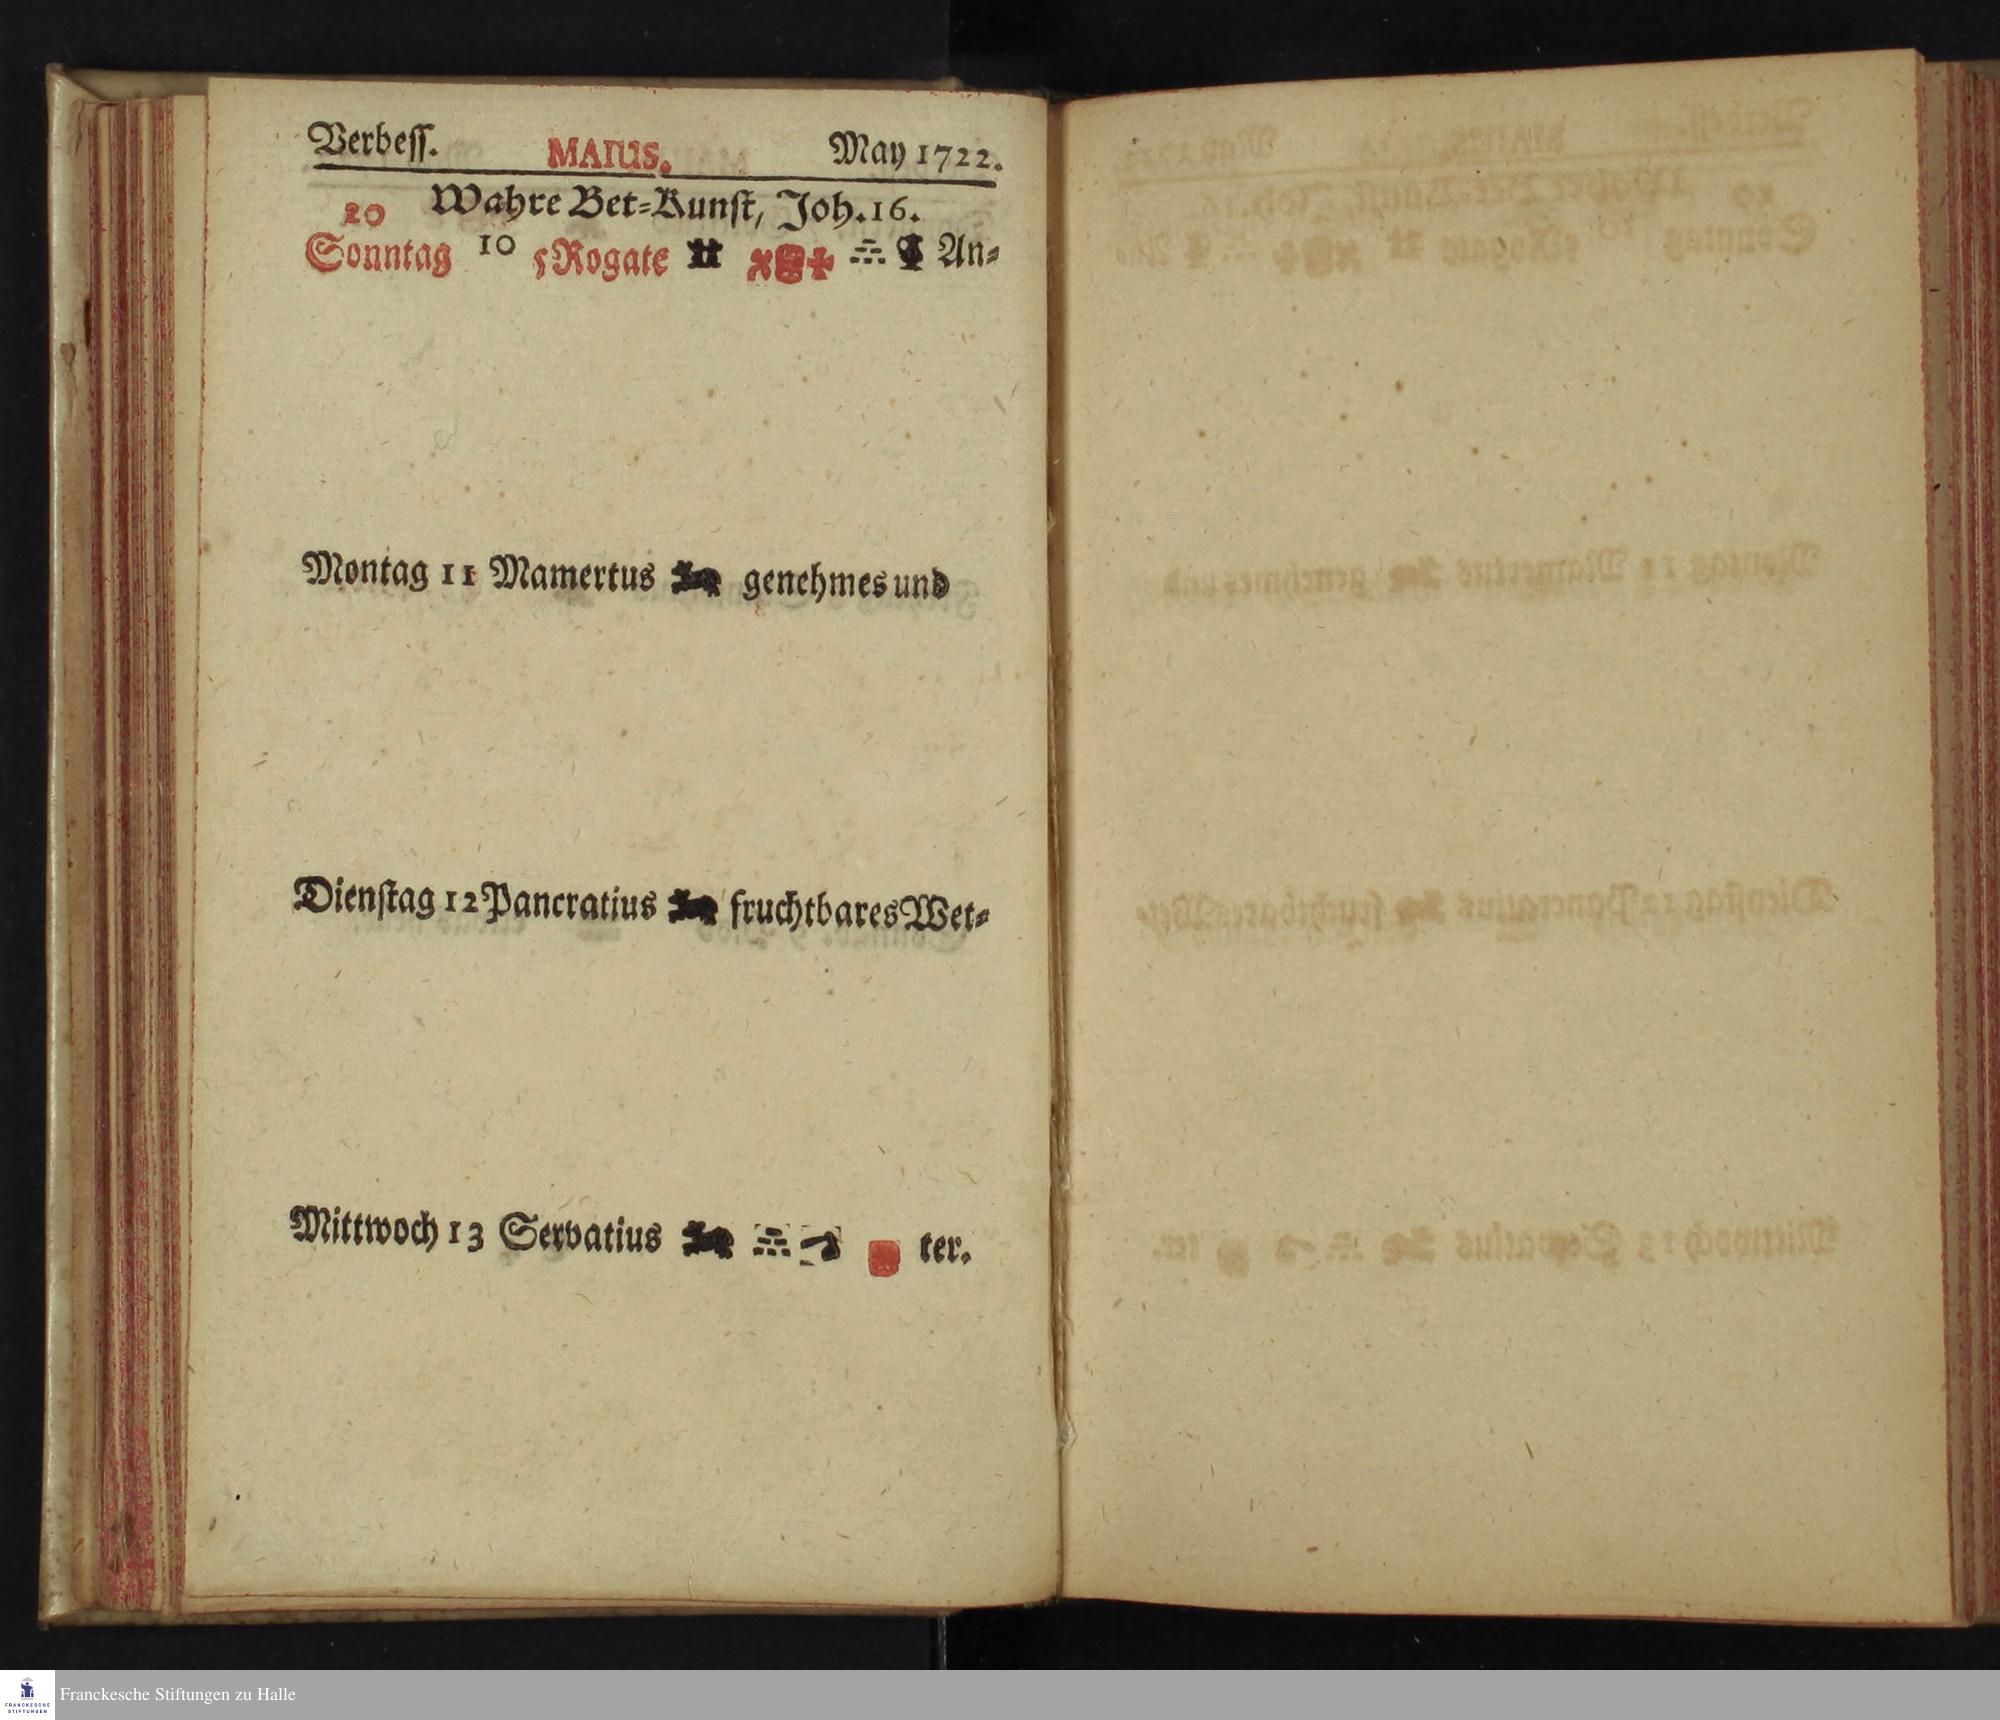 Verbeſſ. MAIUS. May 1722.
20 Wahre Bet=Kunſt, Joh. 16.
Sonntag 10 5 Rogate An=
Montag 11 Mamertus genehmes und
Dienſtag 12 Pancratius fruchtbares Wet=
Mittwoch 13 Servatius ter.
Franckesche Stiftungen zu Halle
FRANCKESCHE
STIFTUNGEN